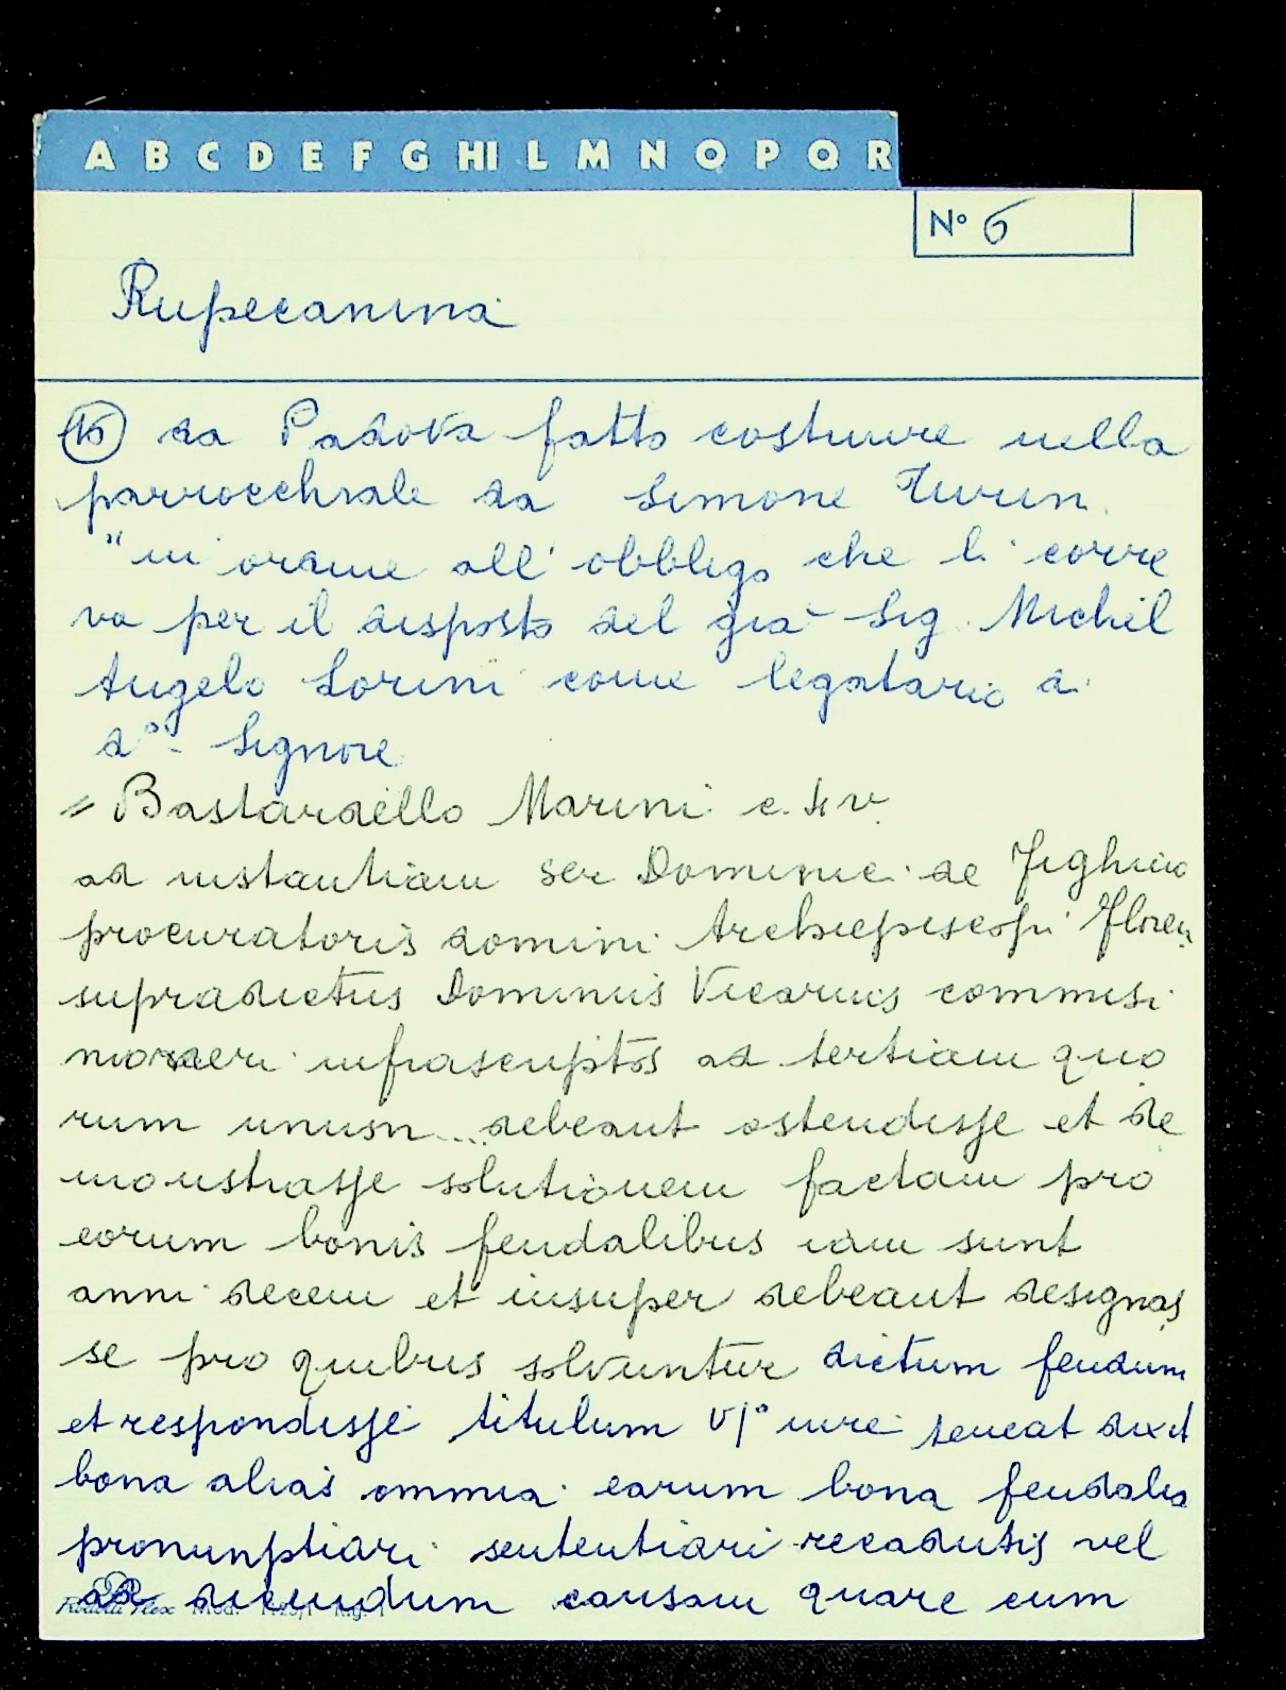 A B C D E F G HI L M N O P Q R
N° 6
Rupecanina
da Padova fatto costruire nella
parrocchiale da Simone Turin
"in ordine all' obbligo che li corre
va per il disposto del già Sig. Michel
Angelo Lorini come legatario a
d° Signore
= Bastardello Marini c.
ad instantiam ser Dominici de
procuratoris domini Archiepiscopi Floren
supradictus Dominus Vicarius commisi
moneri infrascriptos ad tertiam quo
rum unusn... debeant ostendisse et de
monstrasse solutionem factam pro
eorum bonis feudalibus iam sunt
anni decem et insuper debeant designas
se pro quibus solvuntur dictum feudum
et respondisse titulum iure teneat dixit
bona alias ommia earum bona feudalia
pronunptiari sententiari recadutis vel
ad dicendum causam quare cum